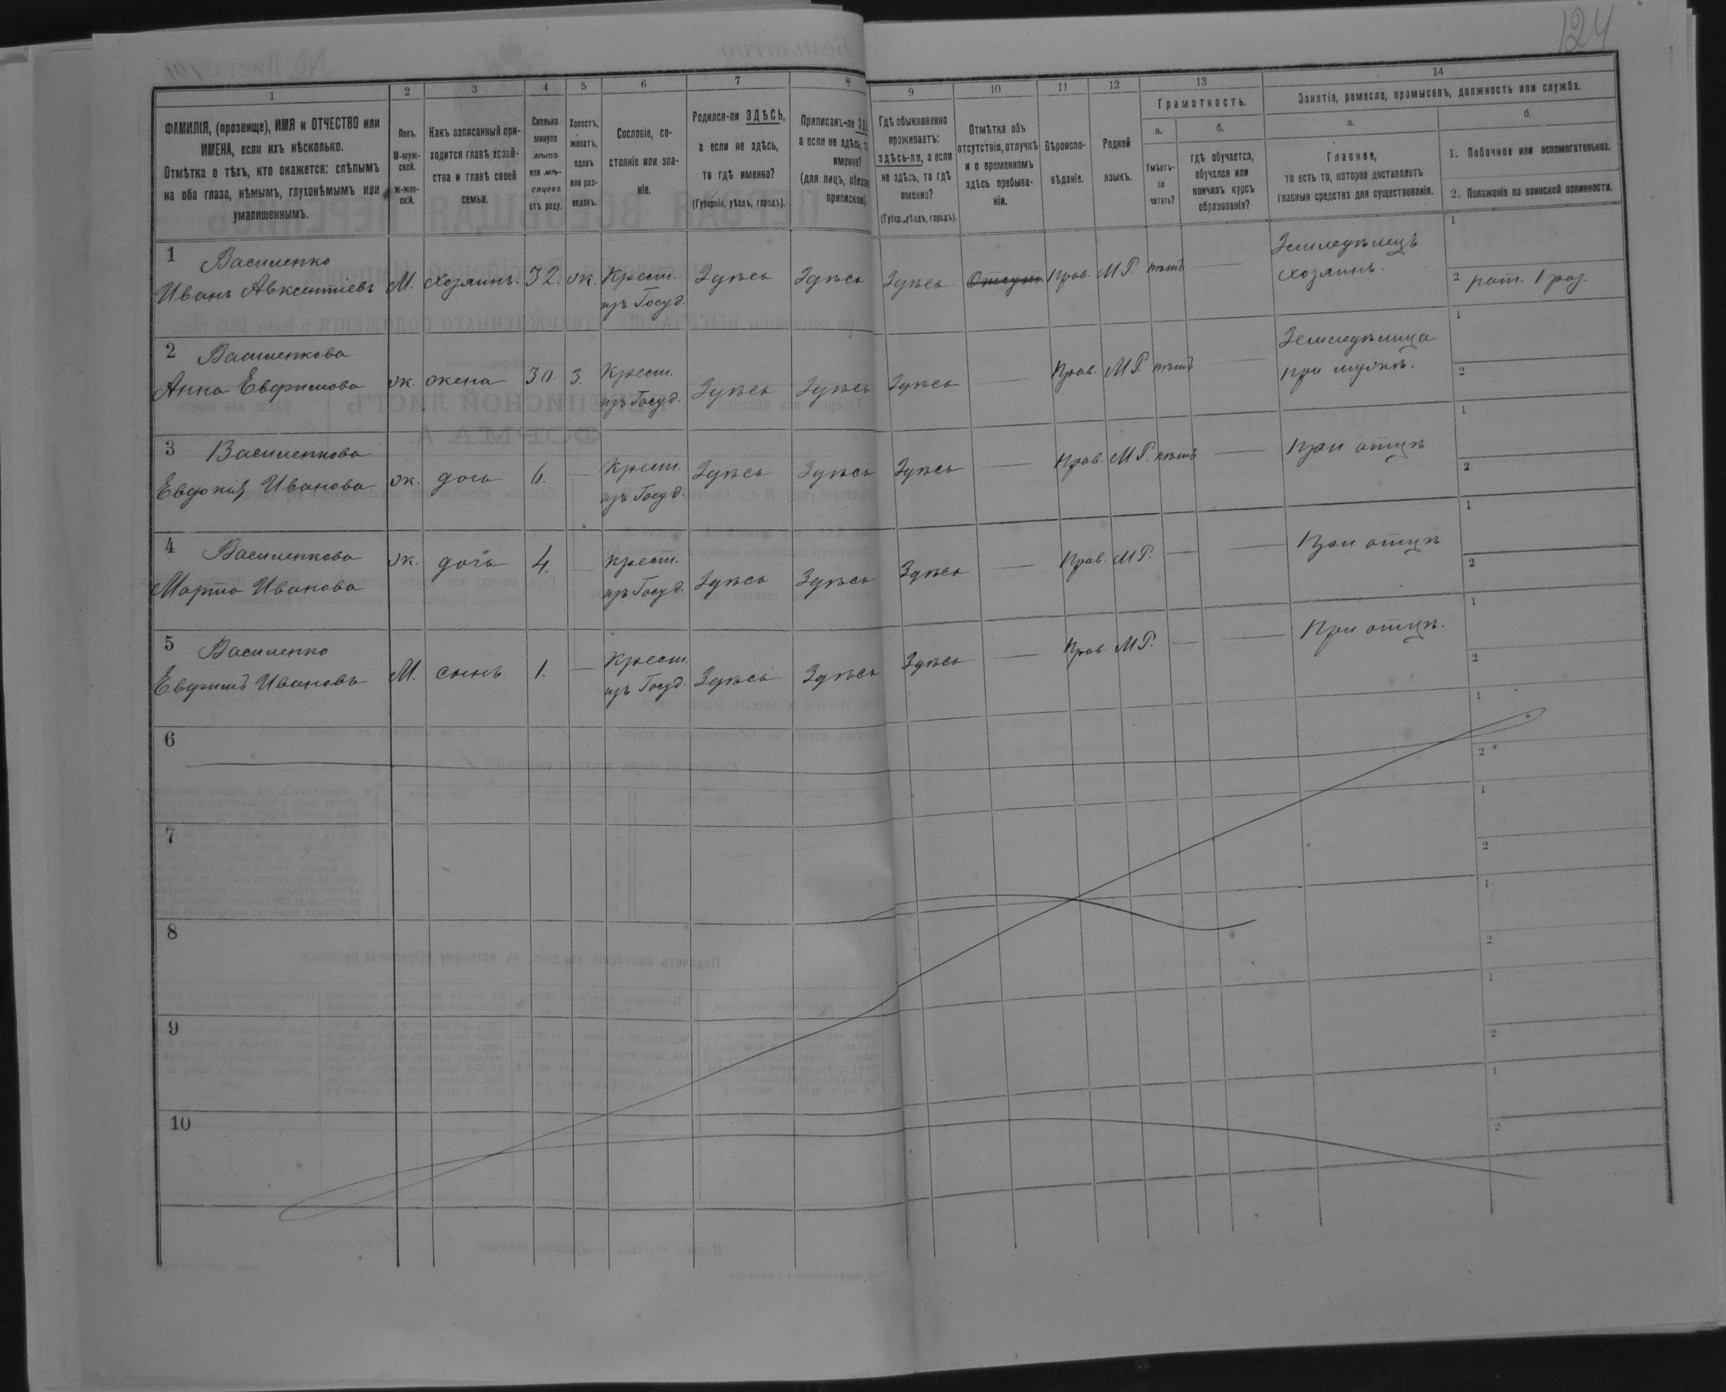 124
1 2 3 4 5 6 7 8 9 10 11 12 13 14
ФАМИЛІЯ, (прозвище), ИМЯ и ОТЧЕСТВО или
ИМЕНА, если ихъ нѣсколько.
Отмѣтка о тѣхъ, кто окажется: слѣпымъ
на оба глаза, нѣмымъ, глухонѣмымъ или
умалишеннымъ.
Полъ.
М-муж-
ской.
ж-жен-
скій.
Какъ записанный при-
ходится главѣ хозяй-
ства и главѣ своей
семьи.
Сколько
минуло
лѣтъ
или мѣ-
сяцевъ
отъ роду.
Холостъ,
женатъ,
вдовъ
или раз-
веденъ.
Сословіе, со-
стояніе или зва-
ніе.
Родился-ли ЗДѢСЬ,
а если не здѣсь,
то гдѣ именно?
(Губернія, уѣздъ, городъ).
Приписанъ-ли
а если не здѣсь,
именно?
(для лицъ,
Гдѣ обыкновенно
проживаетъ:
здѣсь-ли, а если
не здѣсь, то гдѣ
именно?
(Губер., уѣздъ, городъ).
Отмѣтка объ
отсутствіи, отлучкѣ
и о временномъ
здѣсь пребыва-
ніи.
Вѣроиспо-
вѣданіе.
Родной
языкъ.
Грамотность.
а.
Умѣетъ-
ли
читать?
б.
гдѣ обучается,
обучался или
кончилъ курсъ
образованія?
Занятіе, ремесло, промыселъ, должность или служба.
а.
Главное,
то есть то, которое доставляетъ
главныя средства для существованія.
б.
1. Побочное или вспомогательное.
2. Положеніе по воинской повинности.
1 Василенко Земледѣлецъ 1
Иванъ Авксентіевъ М. хозяинъ. 32. ж. Крест. Здѣсь Здѣсь Здѣсь Отсут Прав. МР. нѣтъ — хозяинъ. 2 рат. 1 раз.
изъ Госуд.
2 Василенкова Земледѣлица 1
Анна Евфимова ж. жена 30. З. Крест. Здѣсь Здѣсь Здѣсь — Прав. МР нѣтъ — при мужѣ. 2
изъ Госуд.
3 Василенкова 1
Евдокія Иванова ж. дочь 6. — Крест. Здѣсь Здѣсь Здѣсь — Прав. МР. нѣтъ — При отцѣ 2
изъ Госуд.
4 Василенкова 1
Марта Иванова ж. дочь 4. — Крест. Здѣсь Здѣсь Здѣсь — Прав. МР. — — При отцѣ 2
изъ Госуд.
5 Василенко 1
Евфимъ Ивановъ М. сынъ 1. — Крест. Здѣсь Здѣсь Здѣсь — Прав МР. — — При отцѣ. 2
изъ Госуд
6 1
2
7 1
2
8 1
2
9 1
2
10 1
2